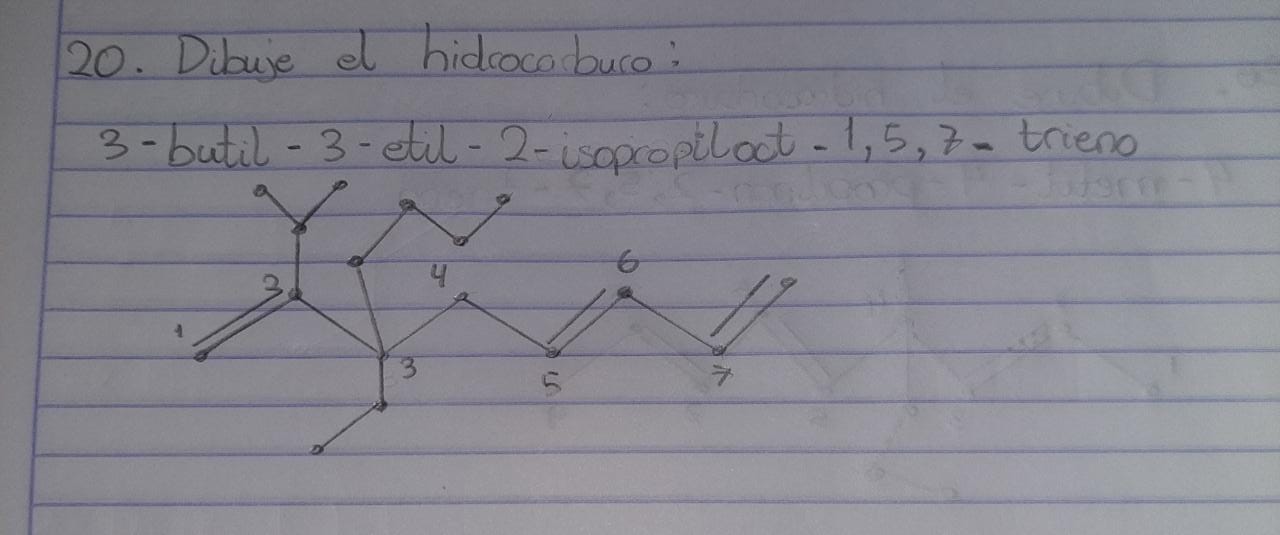 20. Dibuje el hidrocarburo:
3-butil-3-etil-2-isopropiloct-1,5,7-trieno
4
6
2
1
3
5
7